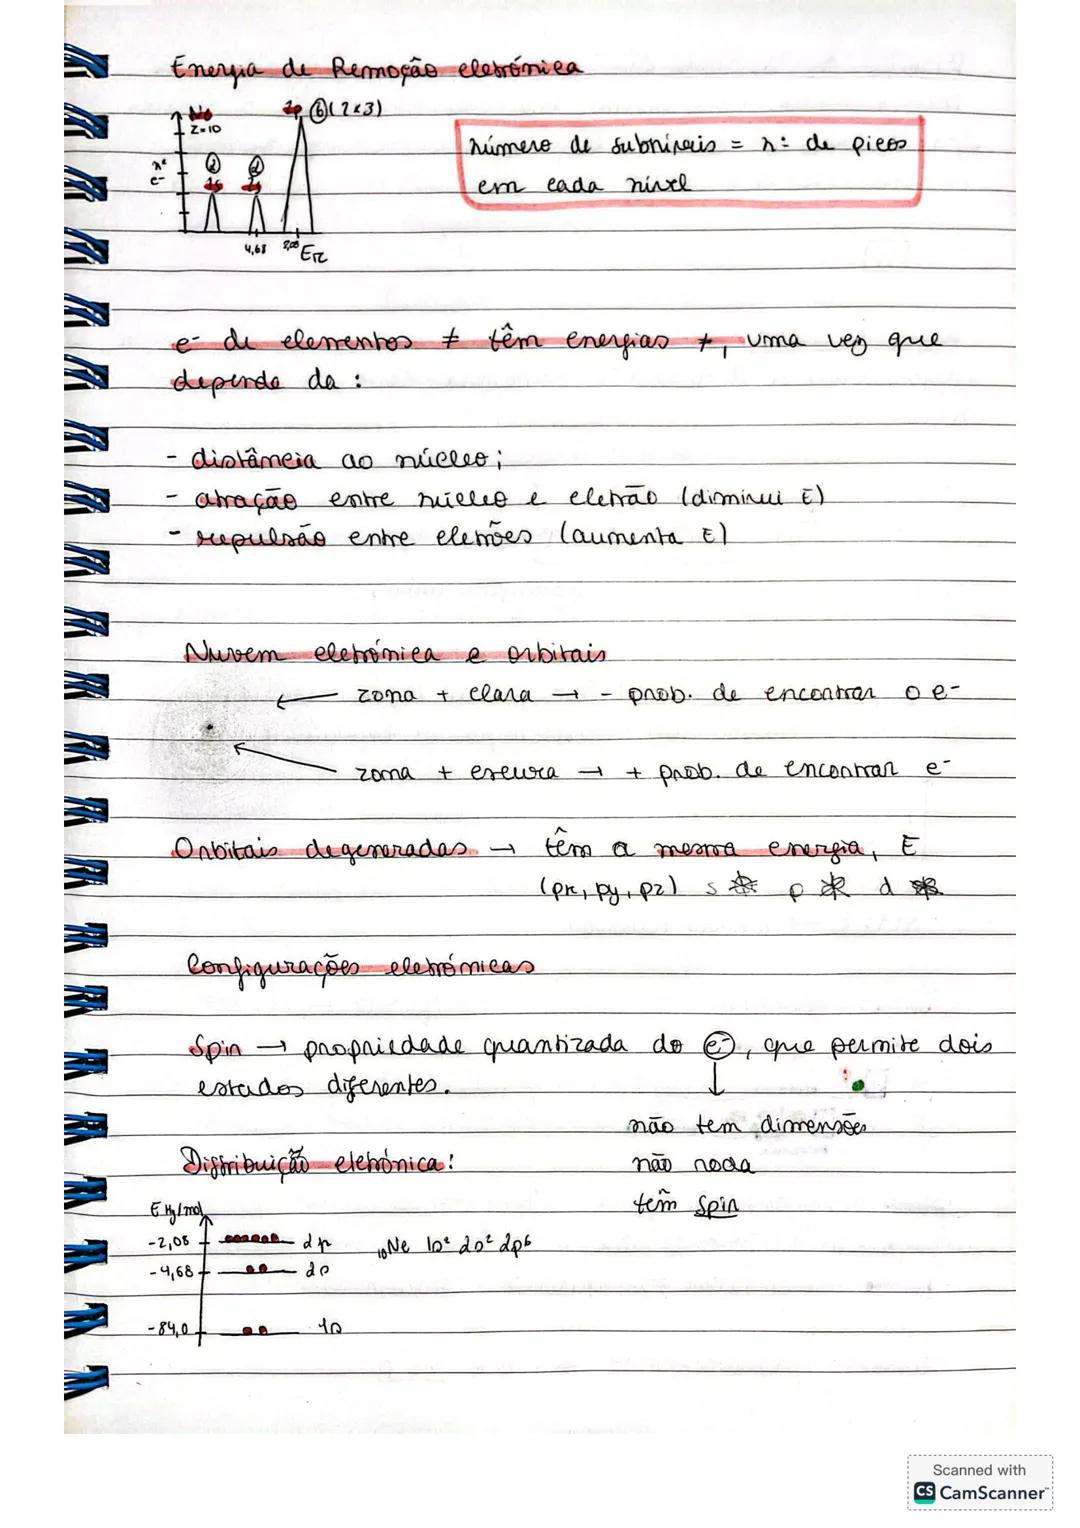 Energia de Remoção eletrónica
Ne
Z=10
2p ⑥(2x3)
② ②
nº
e-
1s 2s
4,68 2,08 ER
número de subníveis = nº de picos
em cada nível
e- de elementos ≠ têm energias ≠, uma vez que
depende da :
- distância ao núcleo;
- atração entre núcleo e eletrão (diminui E)
- repulsão entre eletrões (aumenta E)
Nuvem eletrónica e orbitais
← zona + clara → - prob. de encontrar o e-
zona + escura → + prob. de encontrar e-
Orbitais degeneradas → têm a mesma energia, E
(px, py, pz) s p d
Configurações eletrónicas
Spin → propriedade quantizada do e-, que permite dois
estados diferentes.
não tem dimensões
não roda
tem spin
Distribuição eletrónica:
E Mj/mol
-2,08 2p
₁₀Ne 1s² 2s² 2p⁶
-4,68 2s
-84,0 1s
Scanned with
CS CamScanner